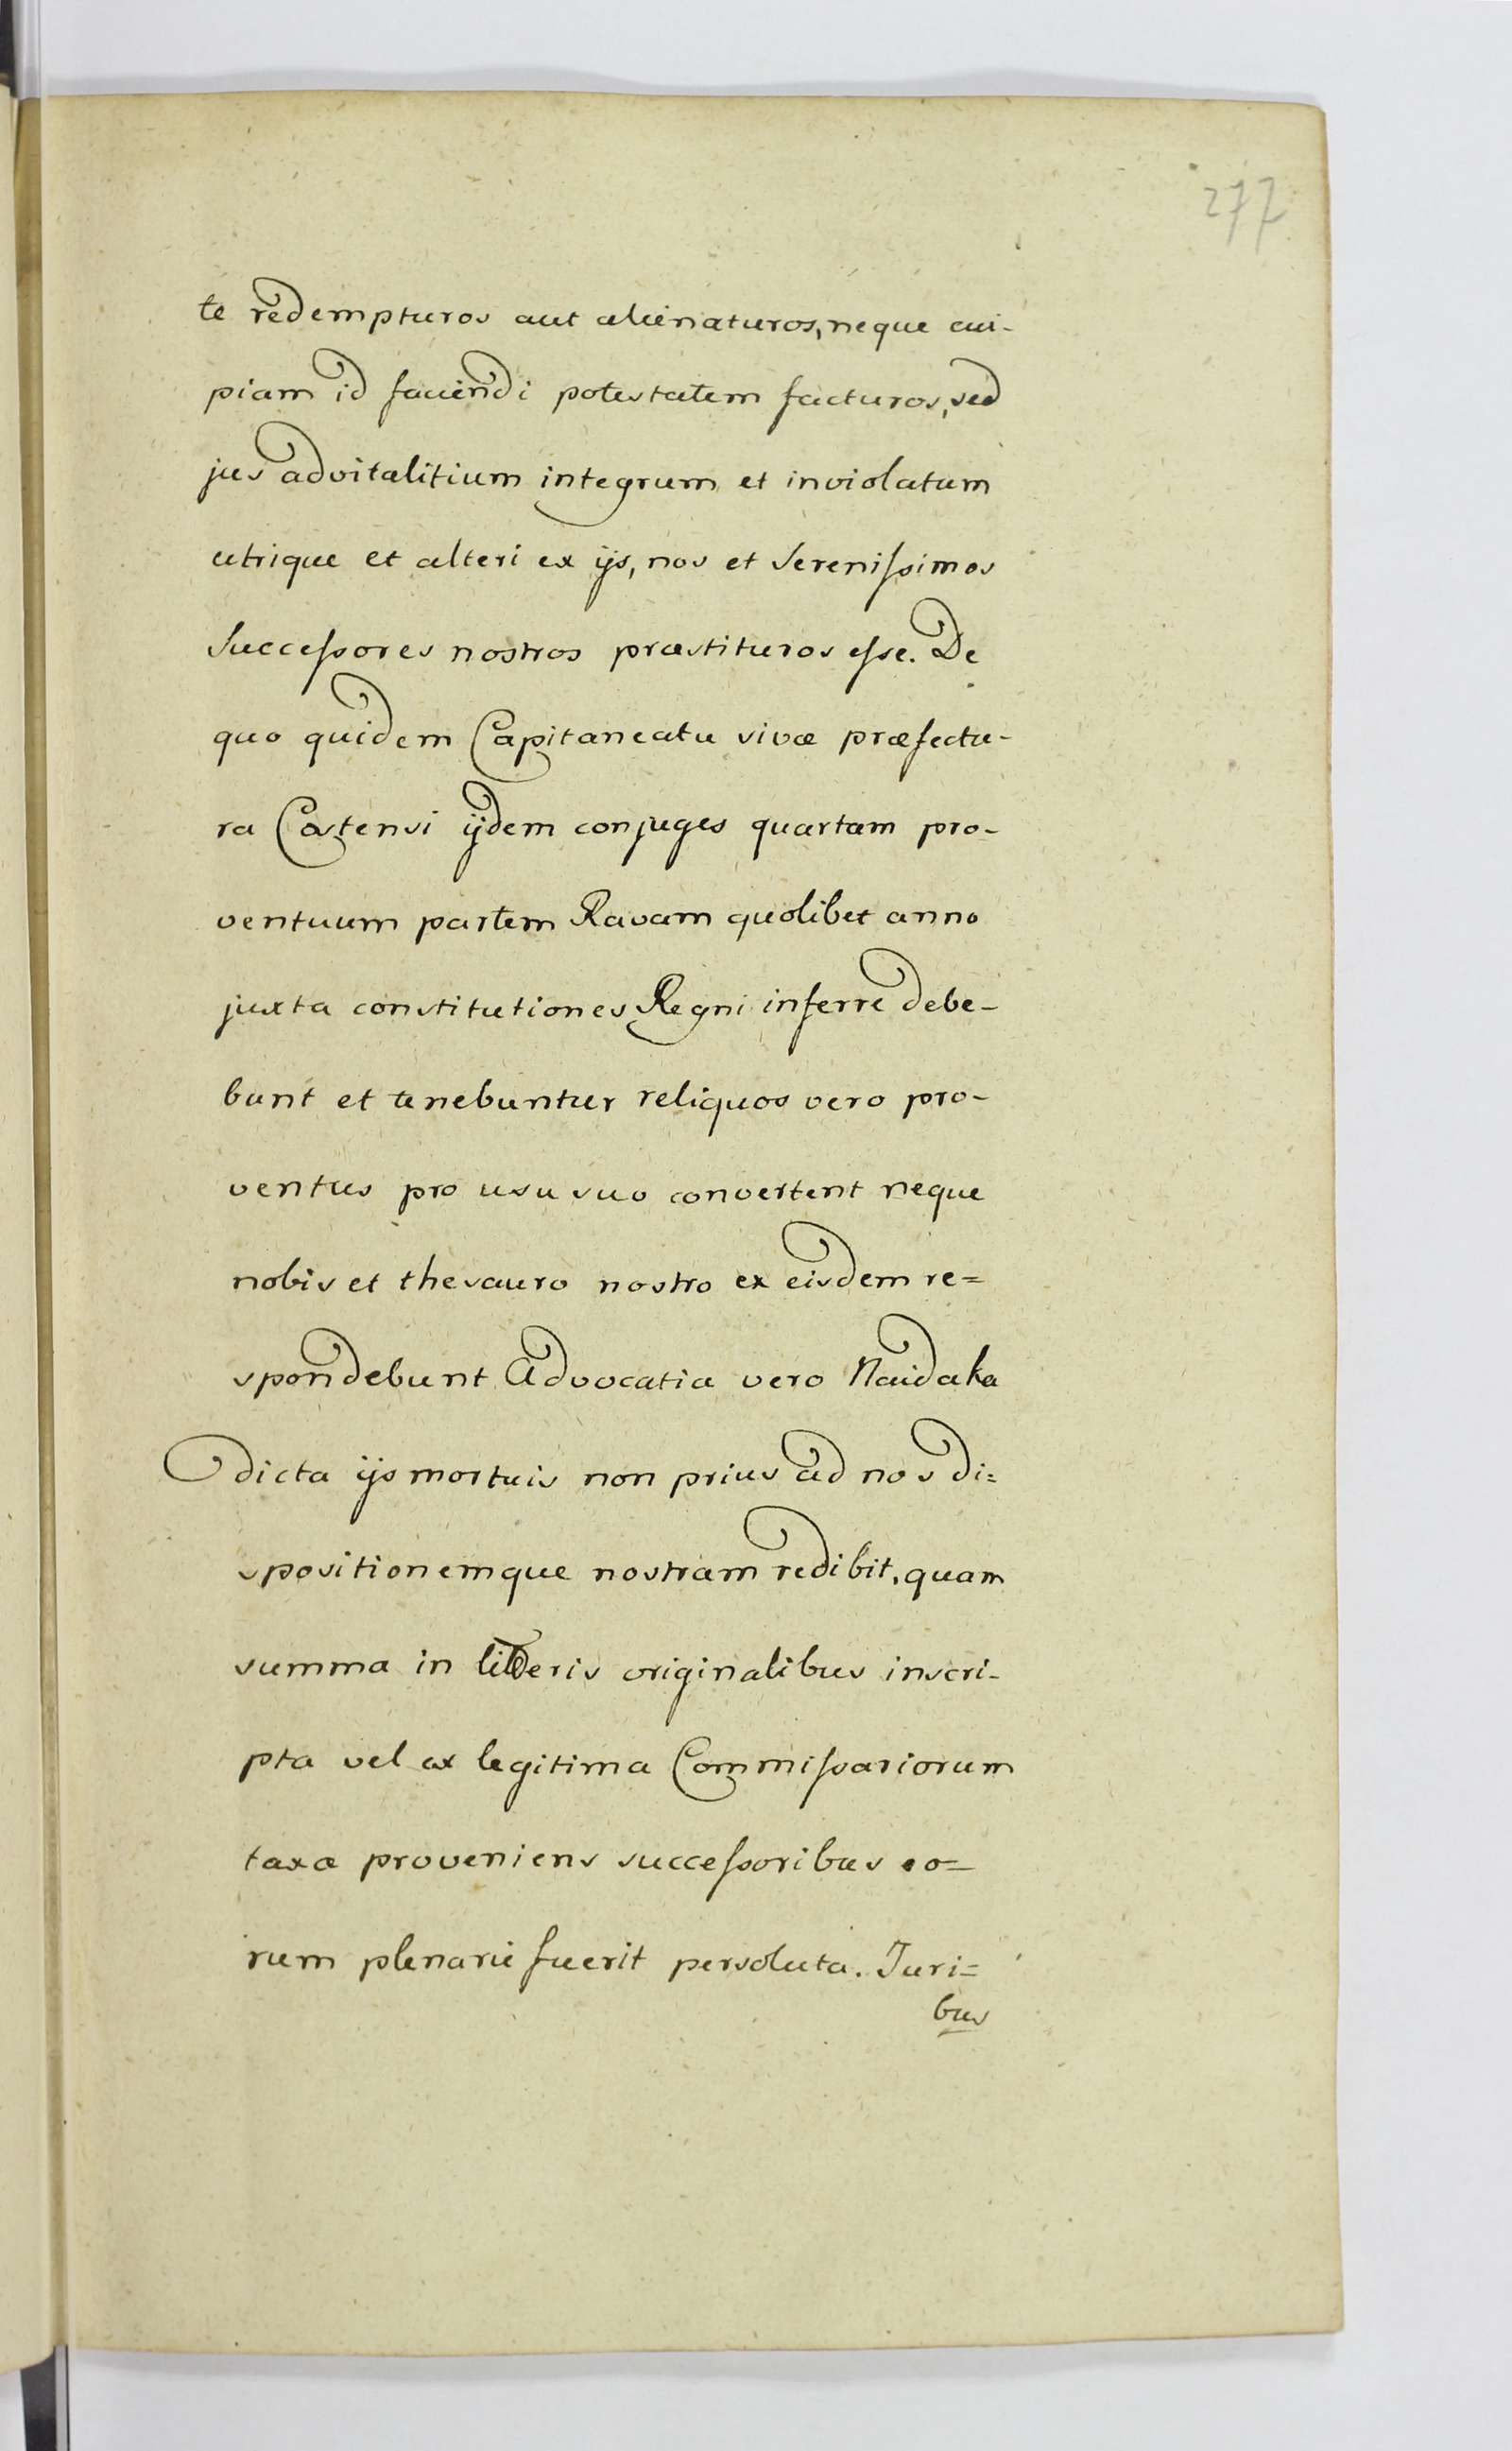 277
te redempturos aut alienaturos, neque cui-
piam id faciendi potestatem facturos, sed
jus advitalitium integrum et inviolatum
utrique et alteri ex ijs, nos et Serenissimos
Successores nostros præstituros esse. De
quo quidem Capitaneatu sivæ præfectu-
ra Costensi ijdem conjuges quartam pro-
ventuum partem Ravam quolibet anno
juxta constitutiones Regni inferre debe-
bunt et tenebuntur reliquos vero pro-
ventus pro usu suo convertent neque
nobis et thesauro nostro ex eisdem re=
spondebunt Advocatia vero Naidaka
dicta ijs mortuis non prius ad nos di=
spositionemque nostram redibit, quam
summa in litteris originalibus inscri-
pta vel ex legitima Commissariorum
taxa proveniens successoribus eo=
rum plenarie fuerit persoluta. Juri=
bus